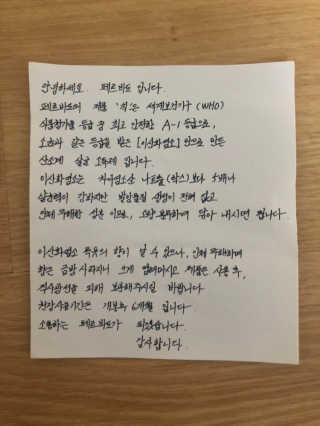 안녕하세요. 페르바도 입니다.
페르바도의 제품 '첵'은 세계보건기구 (WHO)
식품첨가물 등급 중 최고 안전한 A-1 등급으로,
소금과 같은 등급을 받은 [이산화염소] 만으로 만든
산소계 살균 소독제 입니다.
이산화염소는 차아염소산 나트륨 (락스) 보다 5배나
살균력이 강하지만 발암물질 생성이 전혀 없고
인체 무해한 성분 이므로, 소량 분무하며 닦아 내시면 됩니다.
이산화염소 특유의 향이 날 수 있으나, 인체 무해하며
향은 금방 사라지니 크게 염려마시고 제품은 사용 후,
직사광선을 피해 보관해주시길 바랍니다.
권장사용기간은 개봉후 6개월 입니다.
소통하는 페르바도가 되겠습니다.
감사합니다.